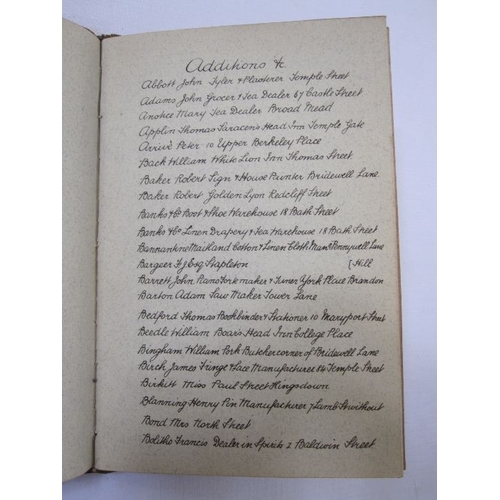 Additions &c
Abbott John Tyler & Plasterer Temple Street
Adams John Grocer & Tea Dealer 67 Castle Street
Mary Tea Dealer Broad Mead
Applin Thomas Saracen's Head Inn Temple Gate
Arrivé Peter 10 Upper Berkeley Place
Back William White Lion Inn Thomas Street
Baker Robert Sign & House Painter Bridewell Lane
Baker Robert Golden Lyon Redcliff Street
Banks & Co Boot & Shoe Warehouse 18 Bath Street
Banks & Co Linen Drapery & Tea Warehouse 18 Bath Street
Maitland Cotton & Linen Cloth Manr Pennywell Lane
Bargeer Esq Stapleton [Hill
Barrett John Piano Forte maker & Tuner York Place Brandon
Barton Adam Saw Maker Tower Lane
Bedford Thomas Bookbinder & Stationer 10 Maryport Street
Beedle William Boar's Head Inn College Place
Bingham William Pork Butcher corner of Bridewell Lane
Birch James Fringe & Lace Manufacturer Temple Street
Birkitt Miss Paul Street Kingsdown
Blanning Henry Pin Manufacturer 7 Lamb St without
Bond Mrs North Street
Bolitho Francis Dealer in Spirits 2 Baldwin Street